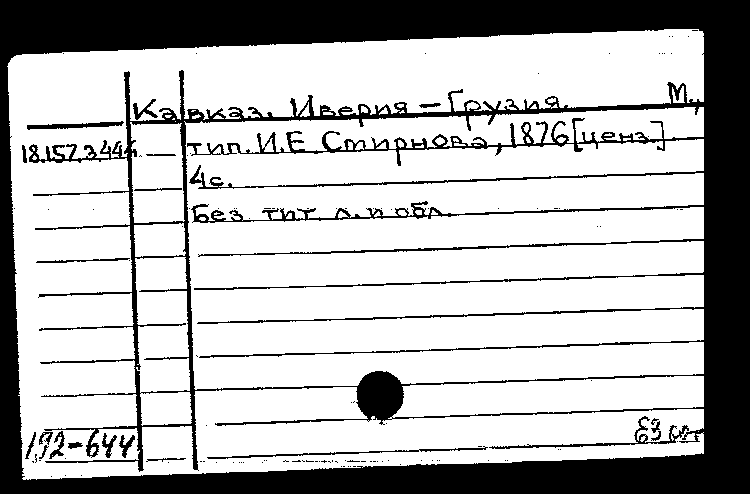 Кавказ. Иверия – Грузия. М.,
18.157.3.444 тип. И.Е Смирнова, 1876 [ценз.]
4с.
Без тит. л. и обл.
192-644